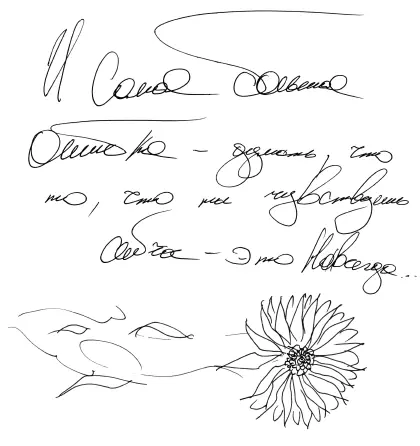 И самая большая
ошибка - думать, что
то, что ты чувствуешь
сейчас - это навсегда...